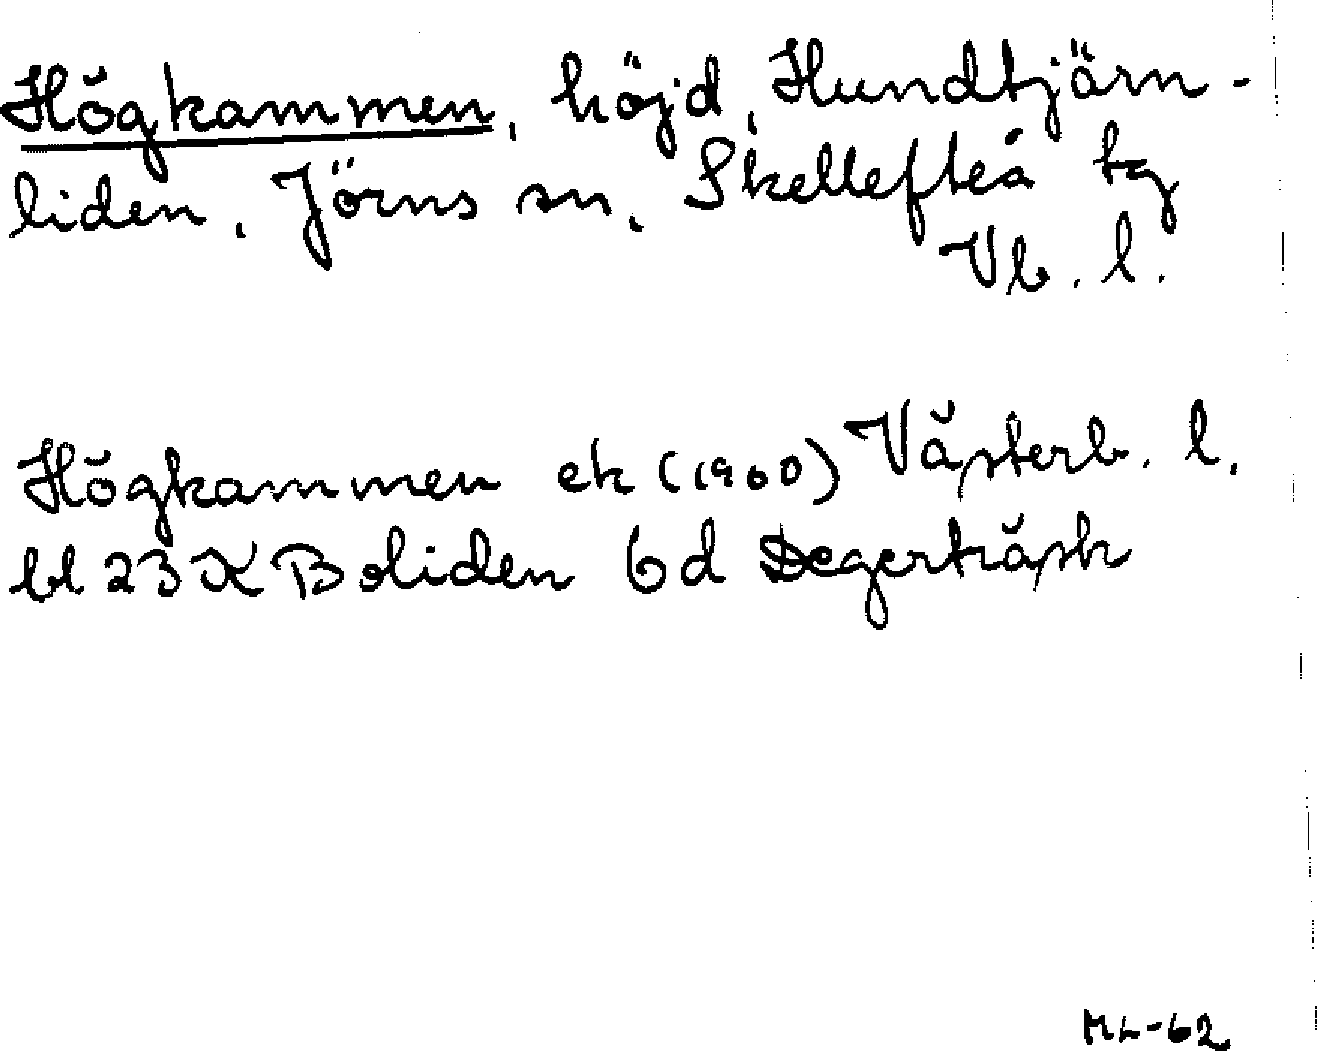 Högkammen, höjd, Hundtjärn-
liden, Jörns sn, Skellefteå tg
Vb. l.
Högkammen ek (1960) Västerb. l.
bl 23 K Boliden 6d Degerträsk
ML-62